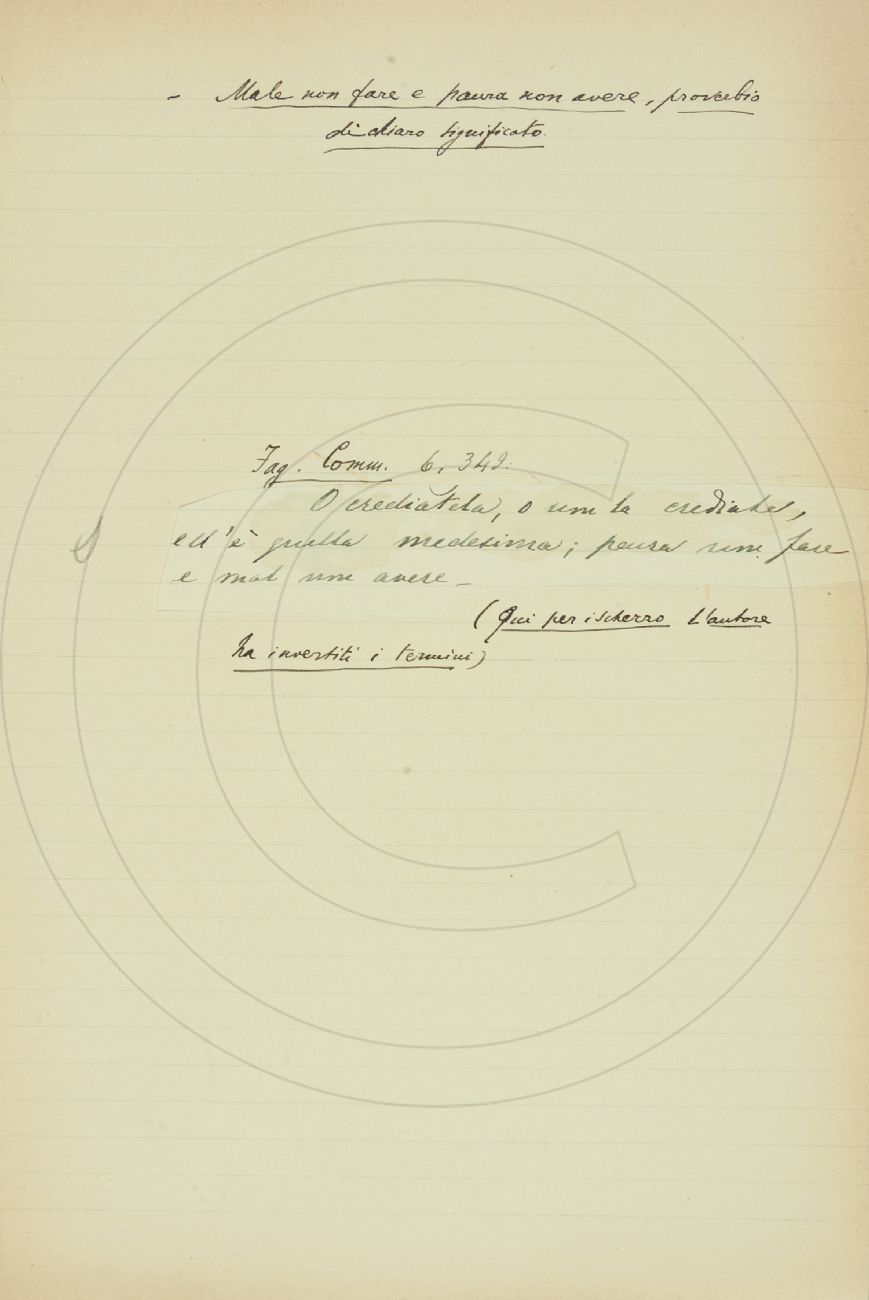 - Male non fare e paura non avere, proverbio
di chiaro significato.
Fag. Comm. 6, 349:
O crediatela, o unn la crediate,
ell'è quella medesima; paura unn fare
e mal unn avere_
(Qui per ischerzo l'autore
ha invertiti i termini)